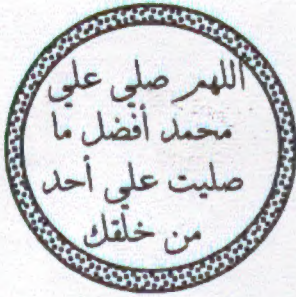 اللهم صلي علي
محمد أفضل ما
صليت علي أحد
من خلقك